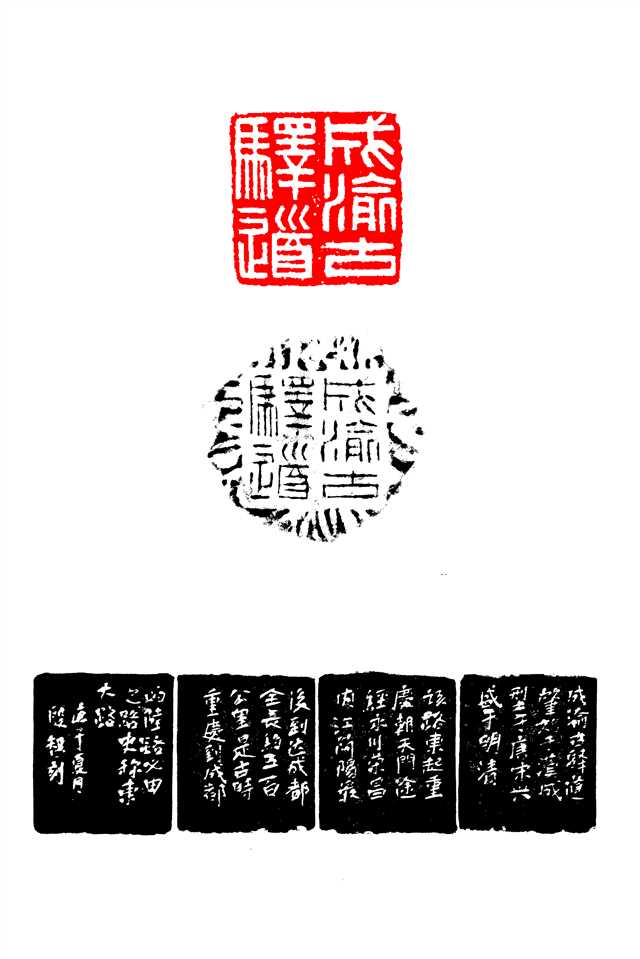 成渝古
驛道
成渝古
驛道
成渝古驛道
肇始于漢成
型于唐宋興
盛于明清
該路東起重
慶朝天門途
經永川榮昌
內江簡陽最
後到达成都
全長約五百
公里是古時
重慶到成都
的陸路必由
之路史稱東
大路
庚子夏月
段祖刻